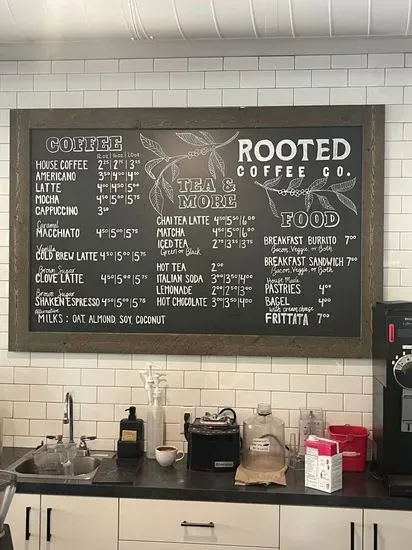 COFFEE
12oz 16oz 20oz
HOUSE COFFEE 2²⁵ 2⁷⁵ 3²⁵
AMERICANO 3⁵⁰ 4⁰⁰ 4⁵⁰
LATTE 4⁰⁰ 4⁵⁰ 5⁰⁰
MOCHA 4⁵⁰ 5⁰⁰ 5⁷⁵
CAPPUCCINO 3⁵⁰
Caramel
MACCHIATO 4⁵⁰ 5⁰⁰ 5⁷⁵
Vanilla
COLD BREW LATTE 4⁵⁰ 5⁰⁰ 5⁷⁵
Brown Sugar
CLOVE LATTE 4⁵⁰ 5⁰⁰ 5⁷⁵
Brown Sugar
SHAKEN ESPRESSO 4⁵⁰ 5⁰⁰ 5⁷⁵
Alternative
MILKS : OAT, ALMOND, SOY, COCONUT
TEA &
MORE
CHAI TEA LATTE 4⁵⁰ 5⁵⁰ 6⁰⁰
MATCHA 4⁵⁰ 5⁵⁰ 6⁰⁰
ICED TEA 2⁷⁵ 3²⁵ 3⁷⁵
Green or Black
HOT TEA 2⁰⁰
ITALIAN SODA 3⁰⁰ 3⁵⁰ 4⁰⁰
LEMONADE 2⁰⁰ 2⁵⁰ 3⁰⁰
HOT CHOCOLATE 3⁰⁰ 3⁵⁰ 4⁰⁰
ROOTED
COFFEE CO.
FOOD
BREAKFAST BURRITO 7⁰⁰
Bacon, Veggie, or Both
BREAKFAST SANDWICH 7⁰⁰
Bacon, Veggie, or Both
House Made
PASTRIES 4⁰⁰
BAGEL 4⁰⁰
with cream cheese
FRITTATA 7⁰⁰